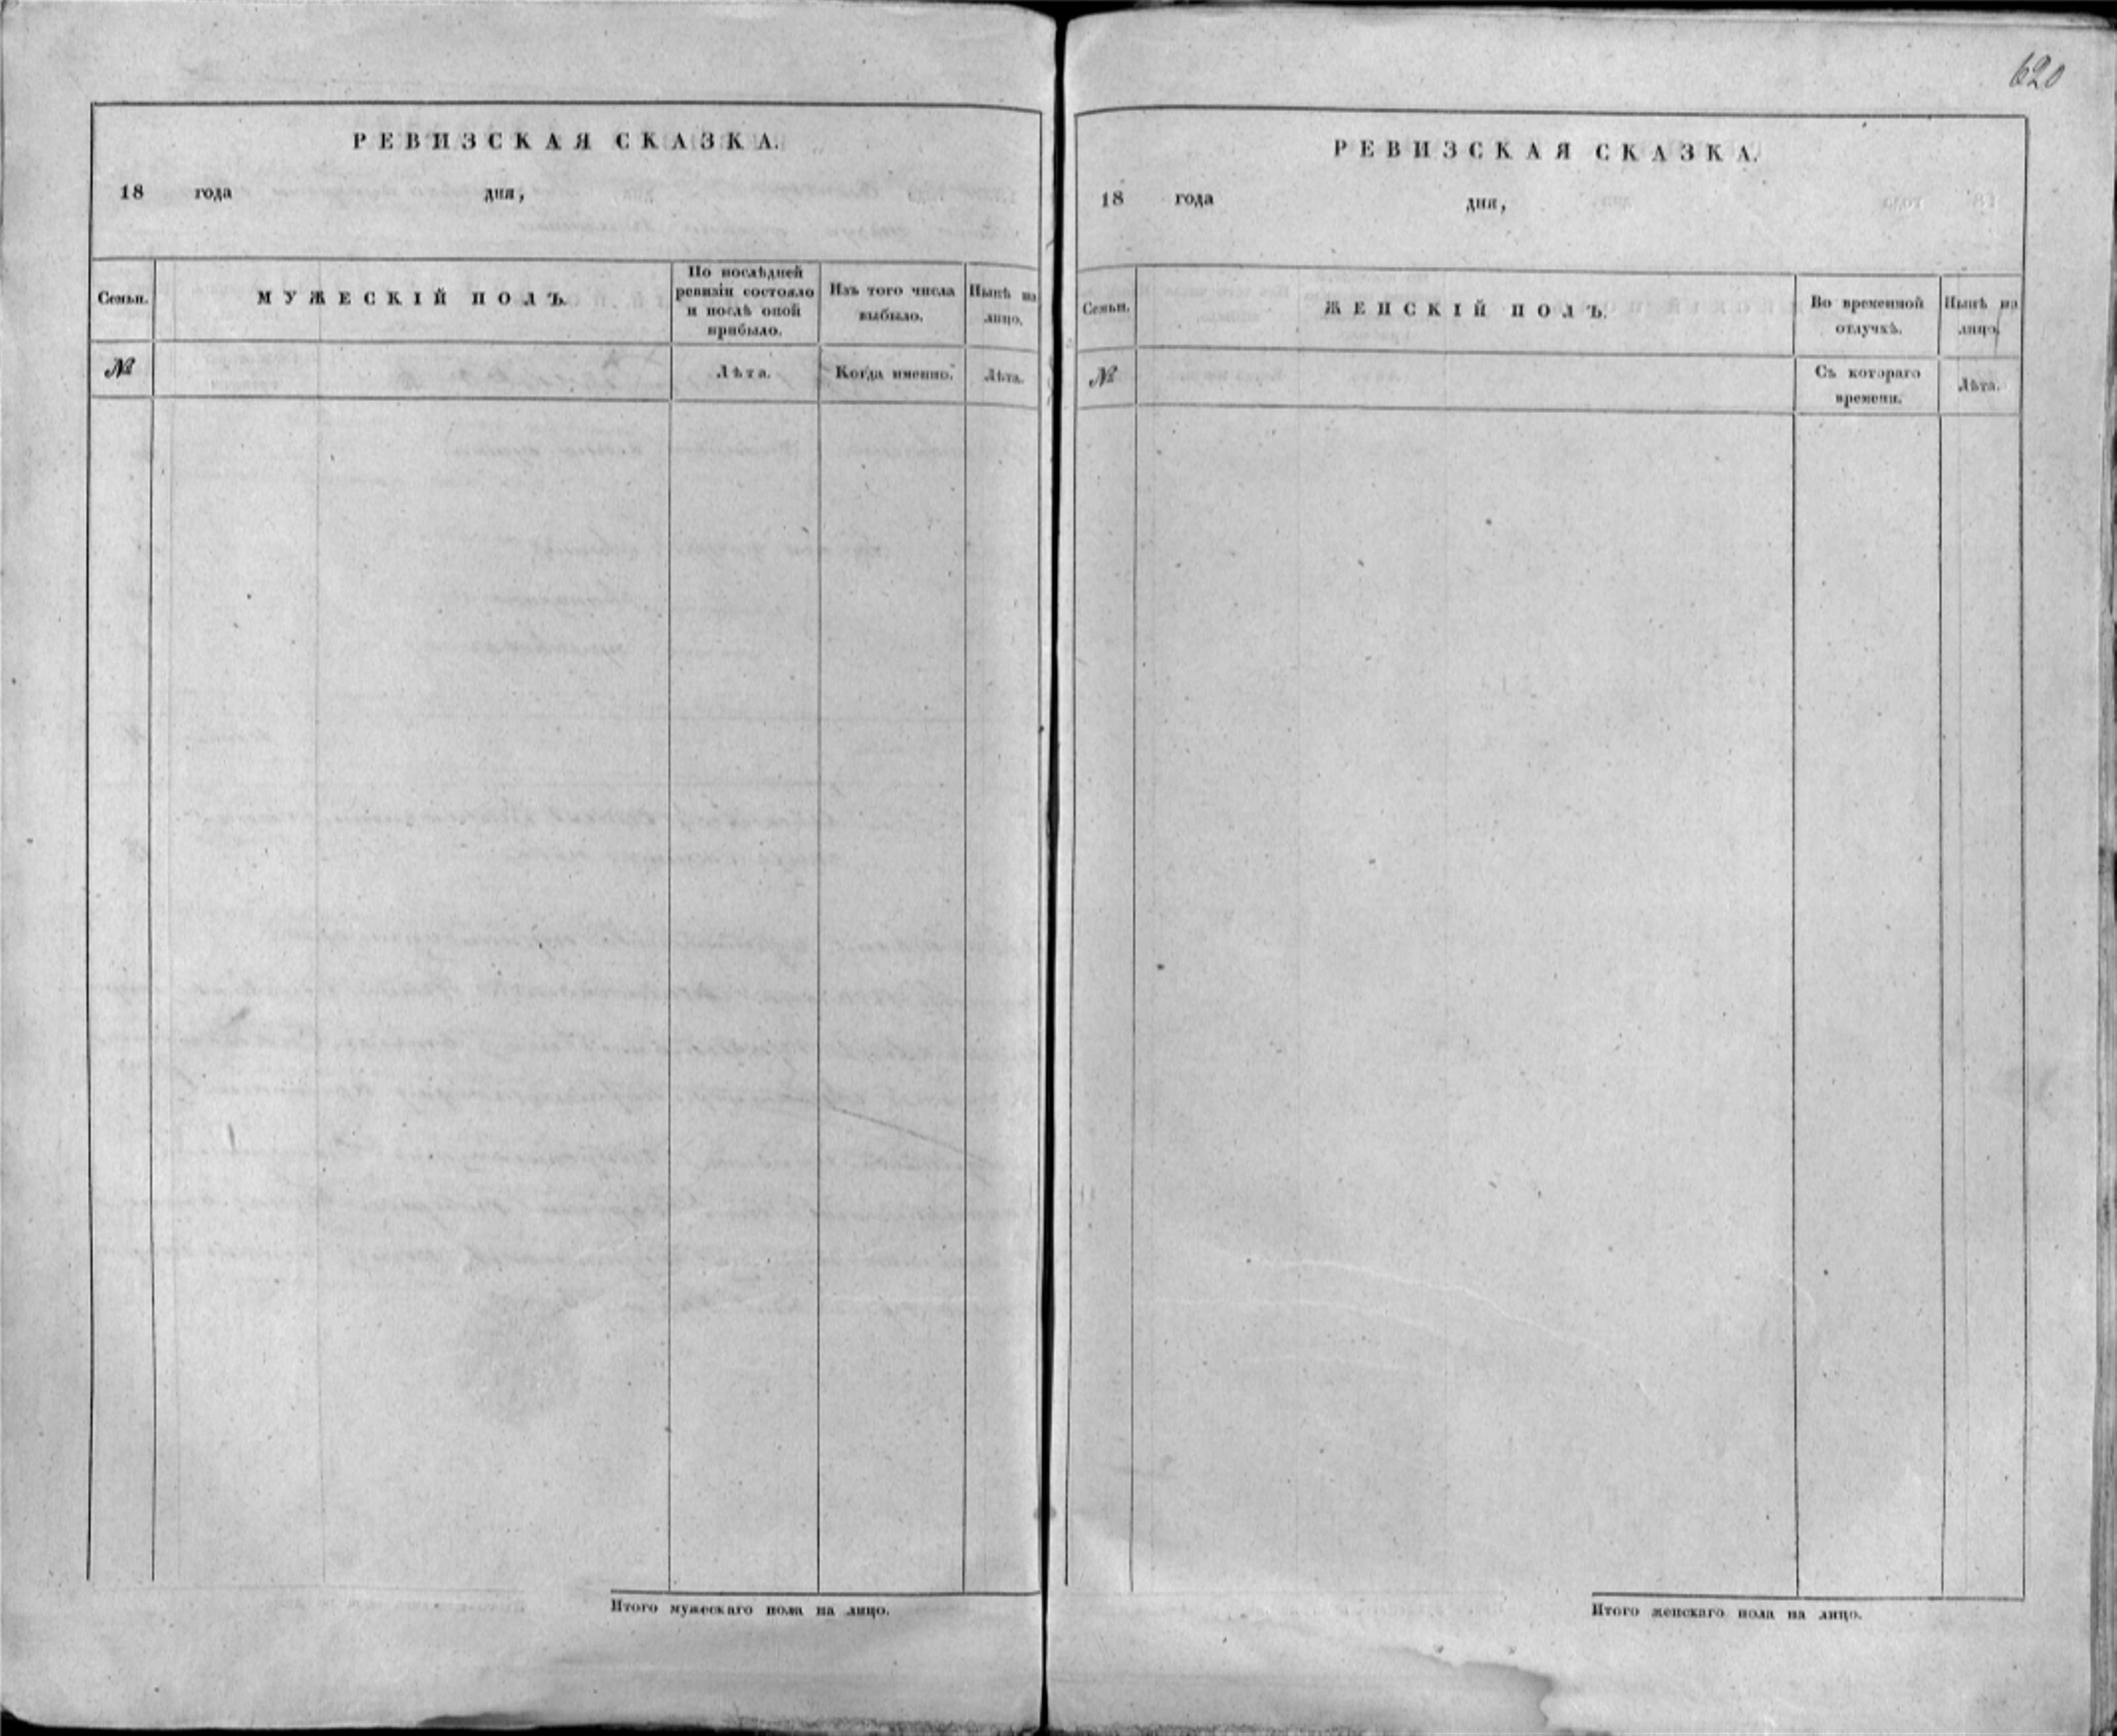 РЕВИЗСКАЯ СКАЗКА.
18 года дня,
Семьи.
МУЖЕСКІЙ ПОЛЪ.
По послѣдней
ревизіи состояло
и послѣ оной
прибыло.
Изъ того числа
выбыло.
Нынѣ на
лицо.
№
Лѣта.
Когда именно.
Лѣта.
Итого мужескаго пола на лицо.
620
РЕВИЗСКАЯ СКАЗКА.
18 года дня,
Семьи.
ЖЕНСКІЙ ПОЛЪ.
Во временной
отлучкѣ.
Нынѣ на
лицо.
№
Съ котораго
времени.
Лѣта.
Итого женскаго пола на лицо.